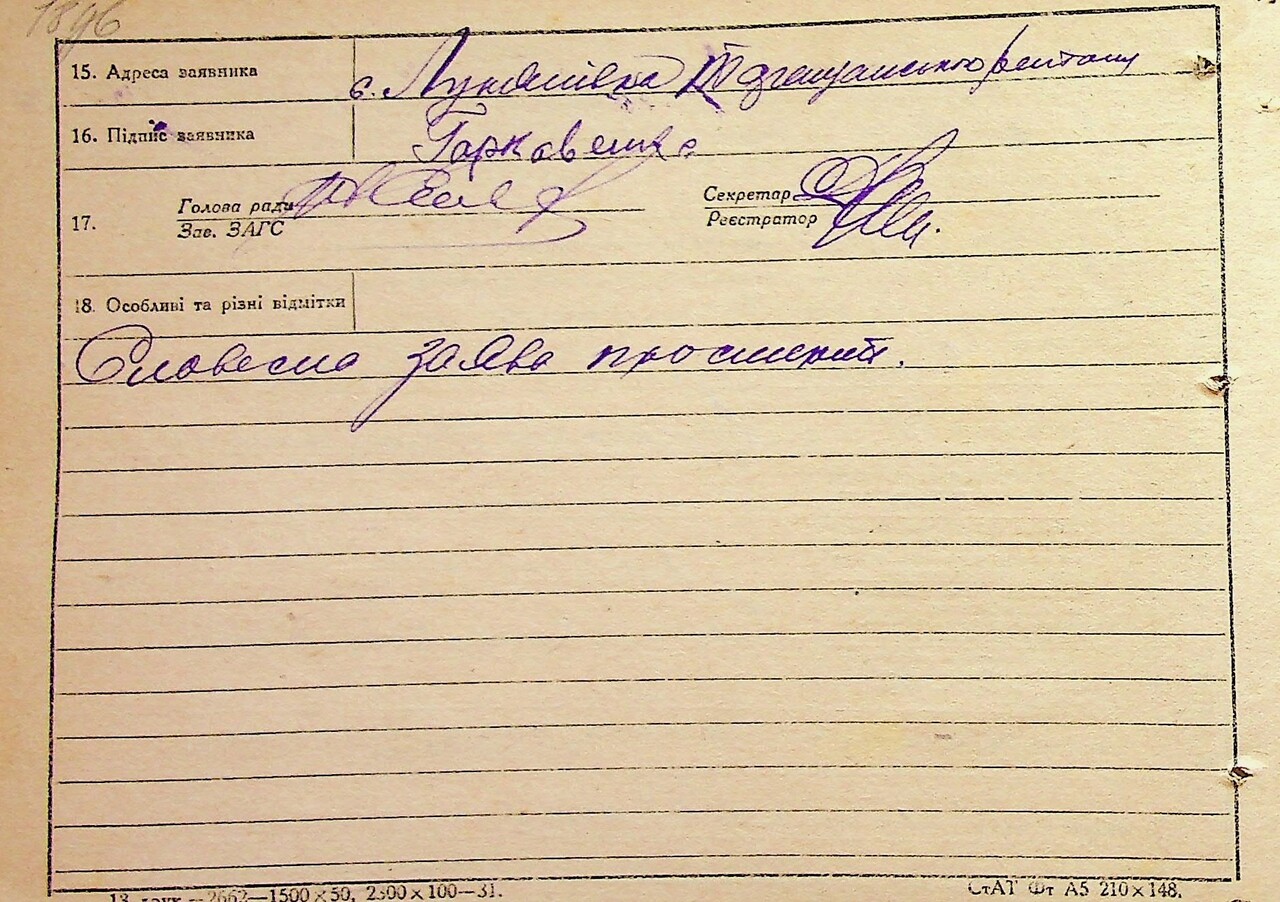 1896
15. Адреса заявника с. Лукашівка Тgeraщанського району
16. Підпис заявника Гарковенко
Голова ради Секретар
17. Зав. ЗАГС Реєстратор
18. Особливі та різні відмітки
Словесна заява
13 друк.—2662—1500×50, 2300×100—31. СтАТ Фт А5 210×148.